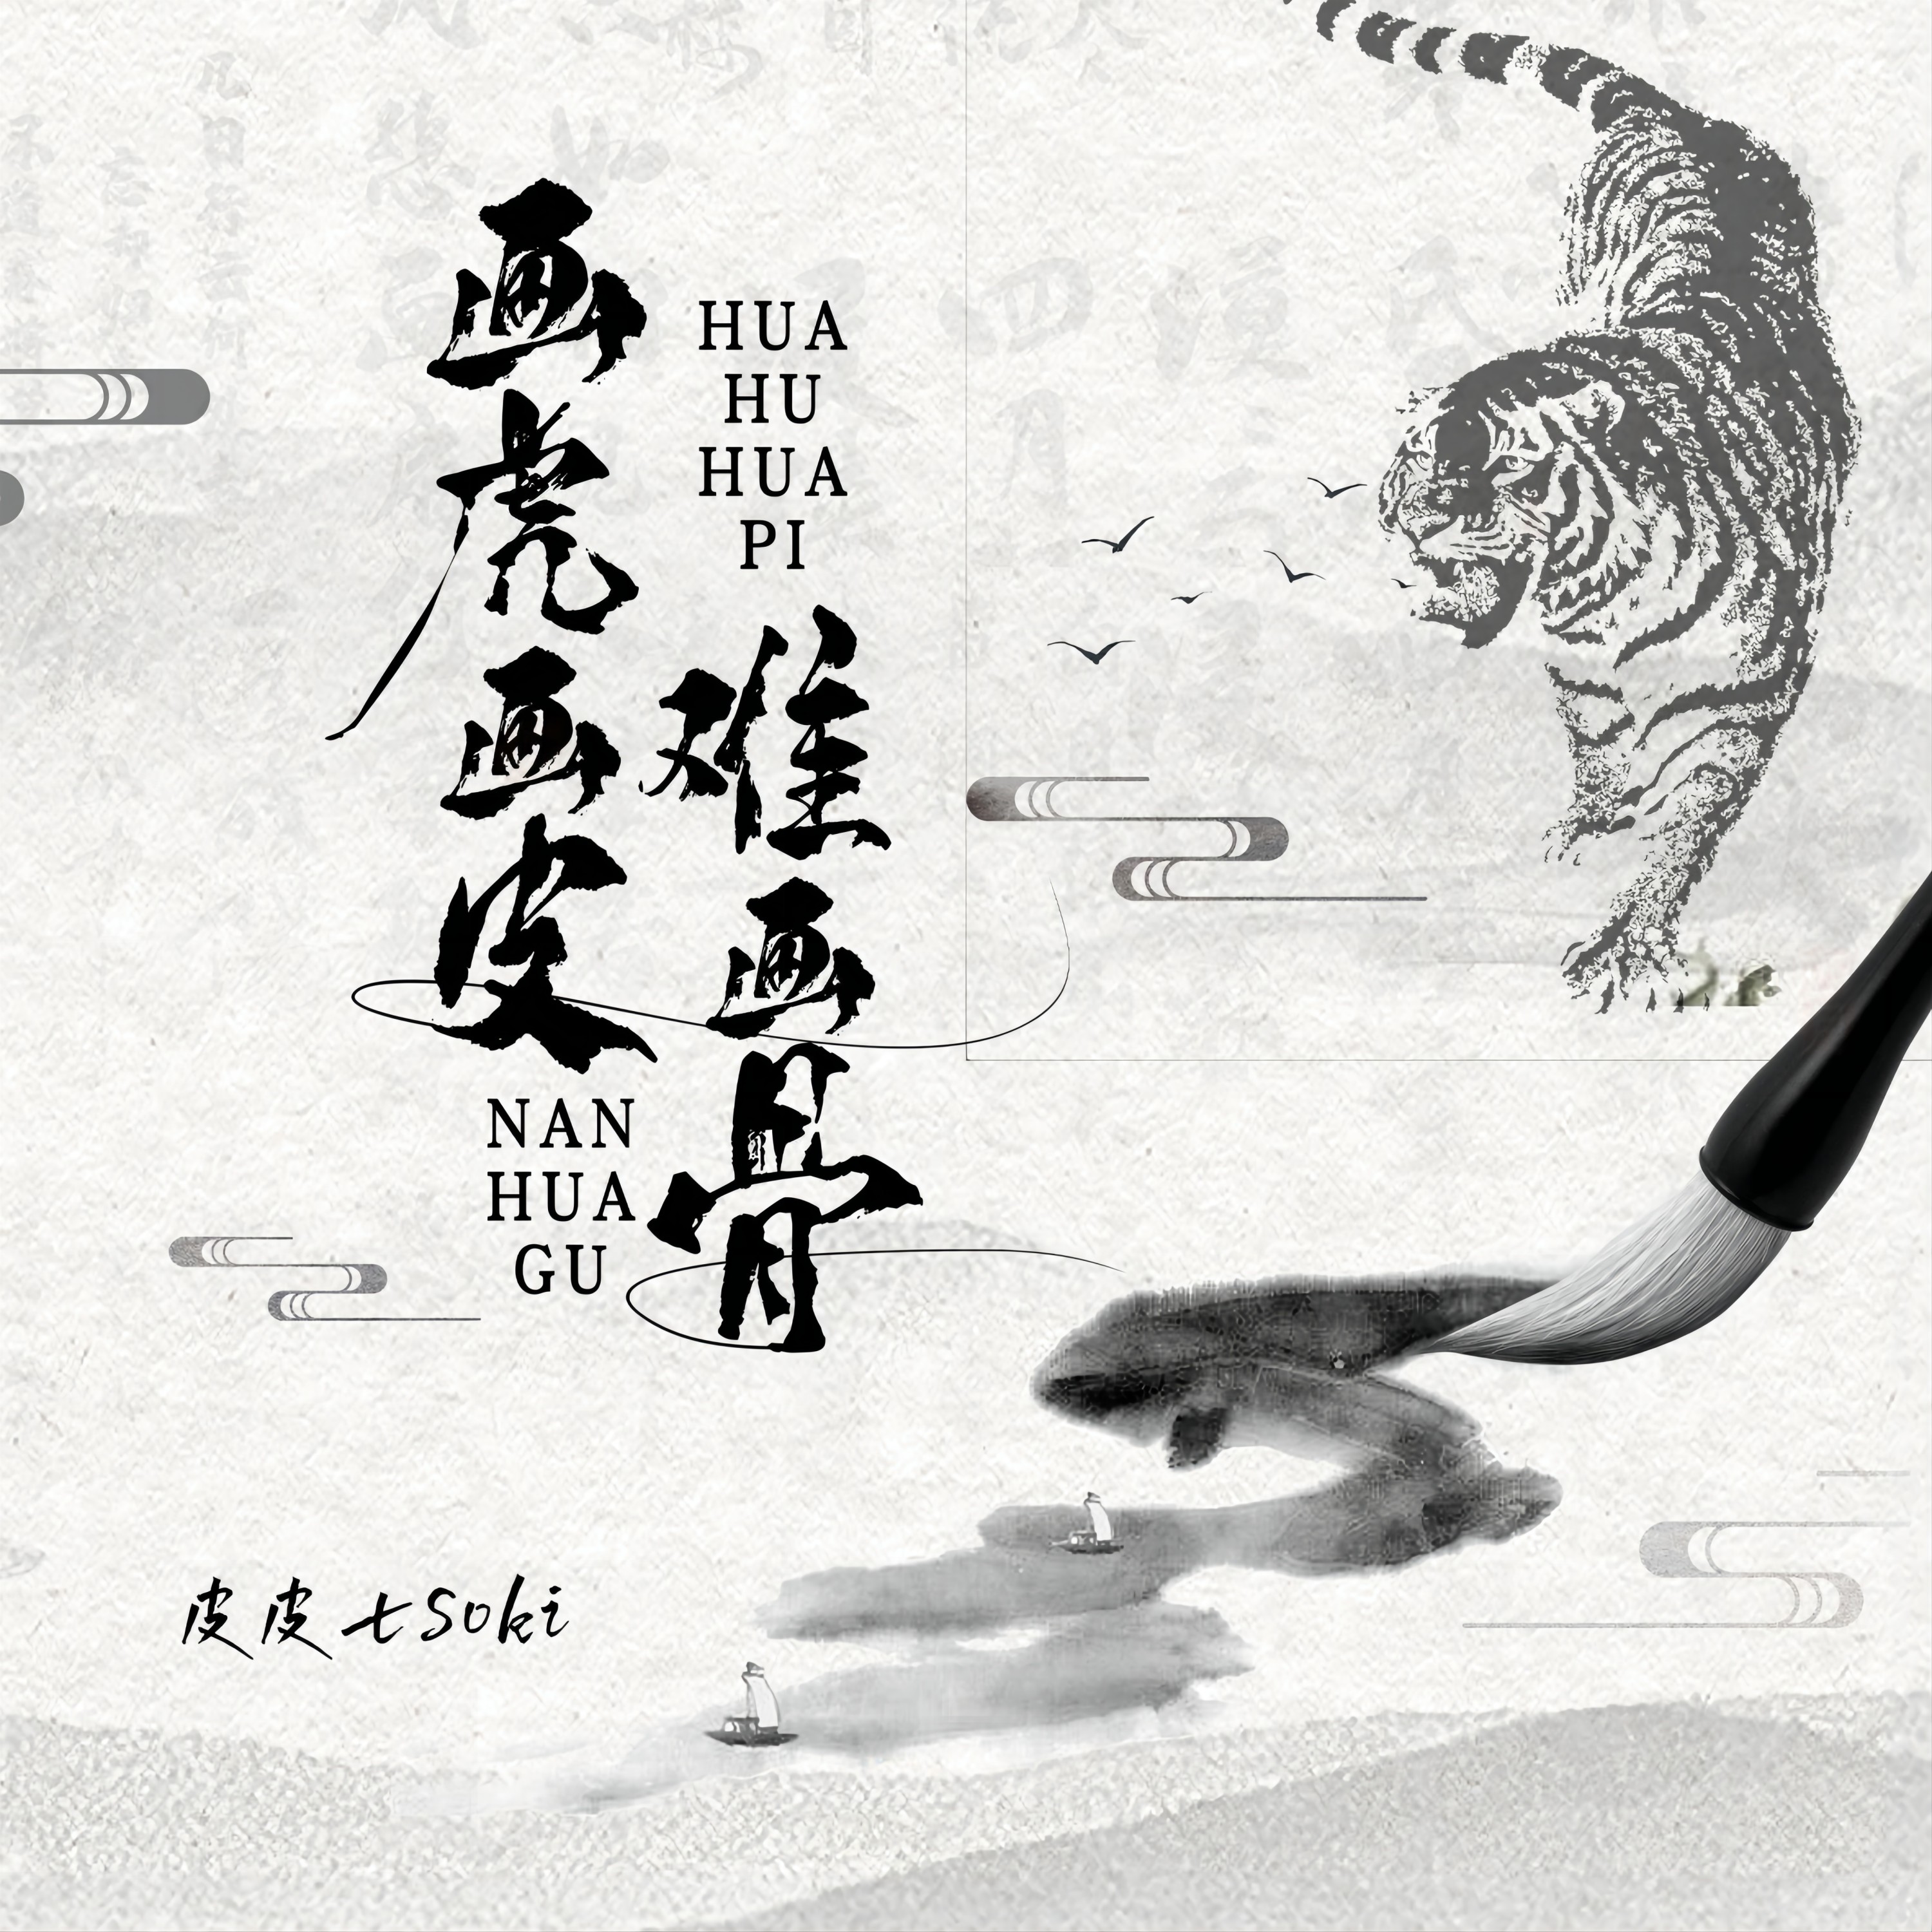 画虎画皮
HUA
HU
HUA
PI
难画骨
NAN
HUA
GU
皮皮七soki